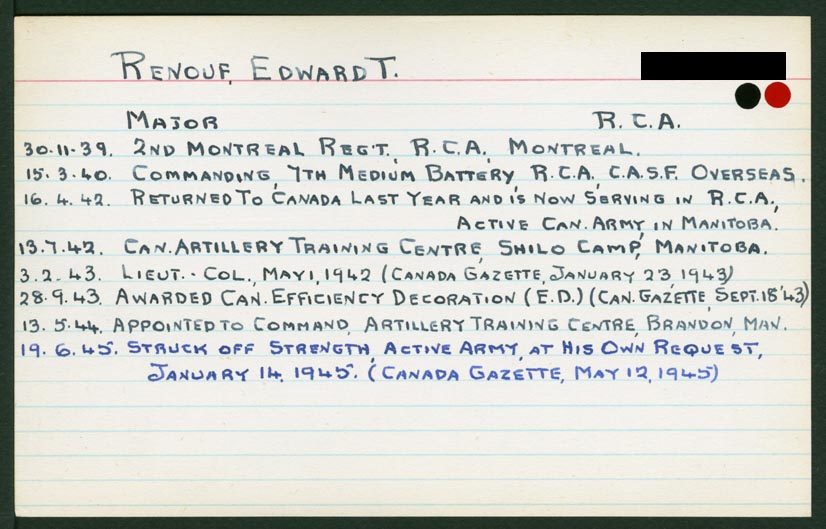 RENOUF, EDWARD T.
MAJOR R.C.A.
30.11.39. 2ND MONTREAL REG'T., R.C.A., MONTREAL.
15.3.40. COMMANDING, 7TH MEDIUM BATTERY, R.C.A., C.A.S.F. OVERSEAS.
16.4.42. RETURNED TO CANADA LAST YEAR AND IS NOW SERVING IN R.C.A.,
ACTIVE CAN. ARMY, IN MANITOBA.
13.7.42. CAN. ARTILLERY TRAINING CENTRE, SHILO CAMP, MANITOBA.
3.2.43. LIEUT.-COL., MAY 1, 1942 (CANADA GAZETTE, JANUARY 23 1943)
28.9.43. AWARDED CAN. EFFICIENCY DECORATION (E.D.) (CAN. GAZETTE, SEPT. 18'43)
13.5.44. APPOINTED TO COMMAND, ARTILLERY TRAINING CENTRE, BRANDON, MAN.
19.6.45. STRUCK OFF STRENGTH, ACTIVE ARMY, AT HIS OWN REQUEST,
JANUARY 14, 1945. (CANADA GAZETTE, MAY 12, 1945)